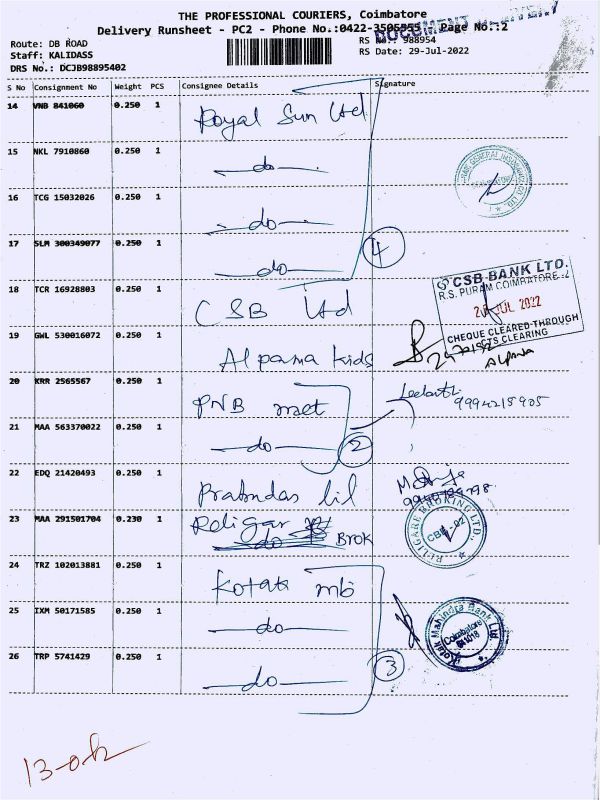 THE PROFESSIONAL COURIERS, Coimbatore
Delivery Runsheet - PC2 - Phone No.:0422-3505555 Page No.:2
Route: DB ROAD
Staff: KALIDASS
DRS No.: DCJB98895402
988954
RS Date: 29-Jul-2022
S No Consignment No Weight PCS Consignee Details Signature
14 VNB 841060 0.250 1 Royal Sun Ltd
15 NKL 7910860 0.250 1 do
16 TCG 15032026 0.250 1 do
17 SLM 300349077 0.250 1 do
4
18 TCR 16928803 0.250 1 CSB Ltd
CSB BANK LTD.
R.S. PURAM COIMBATORE-2
JUL 2022
CHEQUE CLEARED THROUGH
CTS CLEARING
19 GWL 530016072 0.250 1 Alpana kids
Alpana
20 KRR 2565567 0.250 1 PNB met
9994215905
21 MAA 563370022 0.250 1 do
2
22 EDQ 21420493 0.250 1
23 MAA 291501704 0.230 1 Religar Brok
RELIGARE BROKING LTD.
CBE-02
24 TRZ 102013881 0.250 1 Kotak mb
25 IXM 50171585 0.250 1 do
Kotak Mahindra Bank Ltd.
Coimbatore
26 TRP 5741429 0.250 1 do
3
13-ok